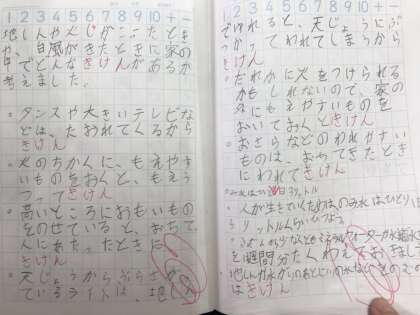 1 2 3 4 5 6 7 8 9 10 + −
地しんやくんじがここったとき
や、台風がきたときに家の
中でどんなきけんがあるか
考えました。
。タンスや大きいテレビな
どは、たおれてくるから
きけん
。火のちかくに、もえやす
いものをおくと、もえう
つってきけん
。高いところにおもいもの
をのせていると、おちて
人にあたったときに
きけん
。天じょうからぶらさがっ
ているライトは、地しん
1 2 3 4 5 6 7 8 9 10 + −
でゆれると、天じょうにぶ
つかってわれてしまうから
きけん
。だれかに火をつけられる
かもしれないので、家の
外にもえやすいものを
おいておくときけん
。おさらなどのわれやすい
ものは、おちてきたとき
にわれてきけん
のみ水は1日3リットル
。人が生きていくためには、のみ水はひとり1日
3リットルくらいひつよう。
ミネラルウォーターか水
を1週間分たくわえておきましょう
地しんや
はきけん